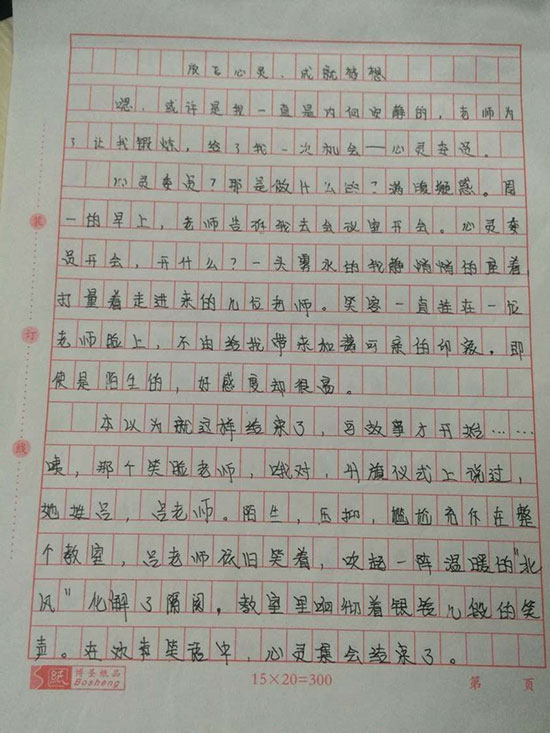 放飞心灵，成就梦想
嗯，或许是我一直是内向安静的，老师为
了让我锻炼，给了我一次机会——心灵委员。
心灵委员？那是做什么的？满腹疑惑。周
一的早上，老师告诉我去会议室开会。心灵委
员开会，开什么？一头雾水的我静悄悄的坐着
打量着走进来的几位老师。笑容一直挂在一位
老师脸上，不由给我带来和蔼可亲的印象，即
使是陌生的，好感度却很高。
本以为就这样结束了，可故事才开始……
咦，那个笑脸老师，哦对，升旗仪式上说过，
她姓吕，吕老师。陌生，压抑，尴尬充斥在整
个教室，吕老师依旧笑着，吹起一阵温暖的“北
风”化解了隔阂，教室里响彻着银铃儿般的笑
声。在欢声笑语中，心灵集会结束了。
装
订
线
纸 博圣纸品
Bosheng
15×20=300
第 页